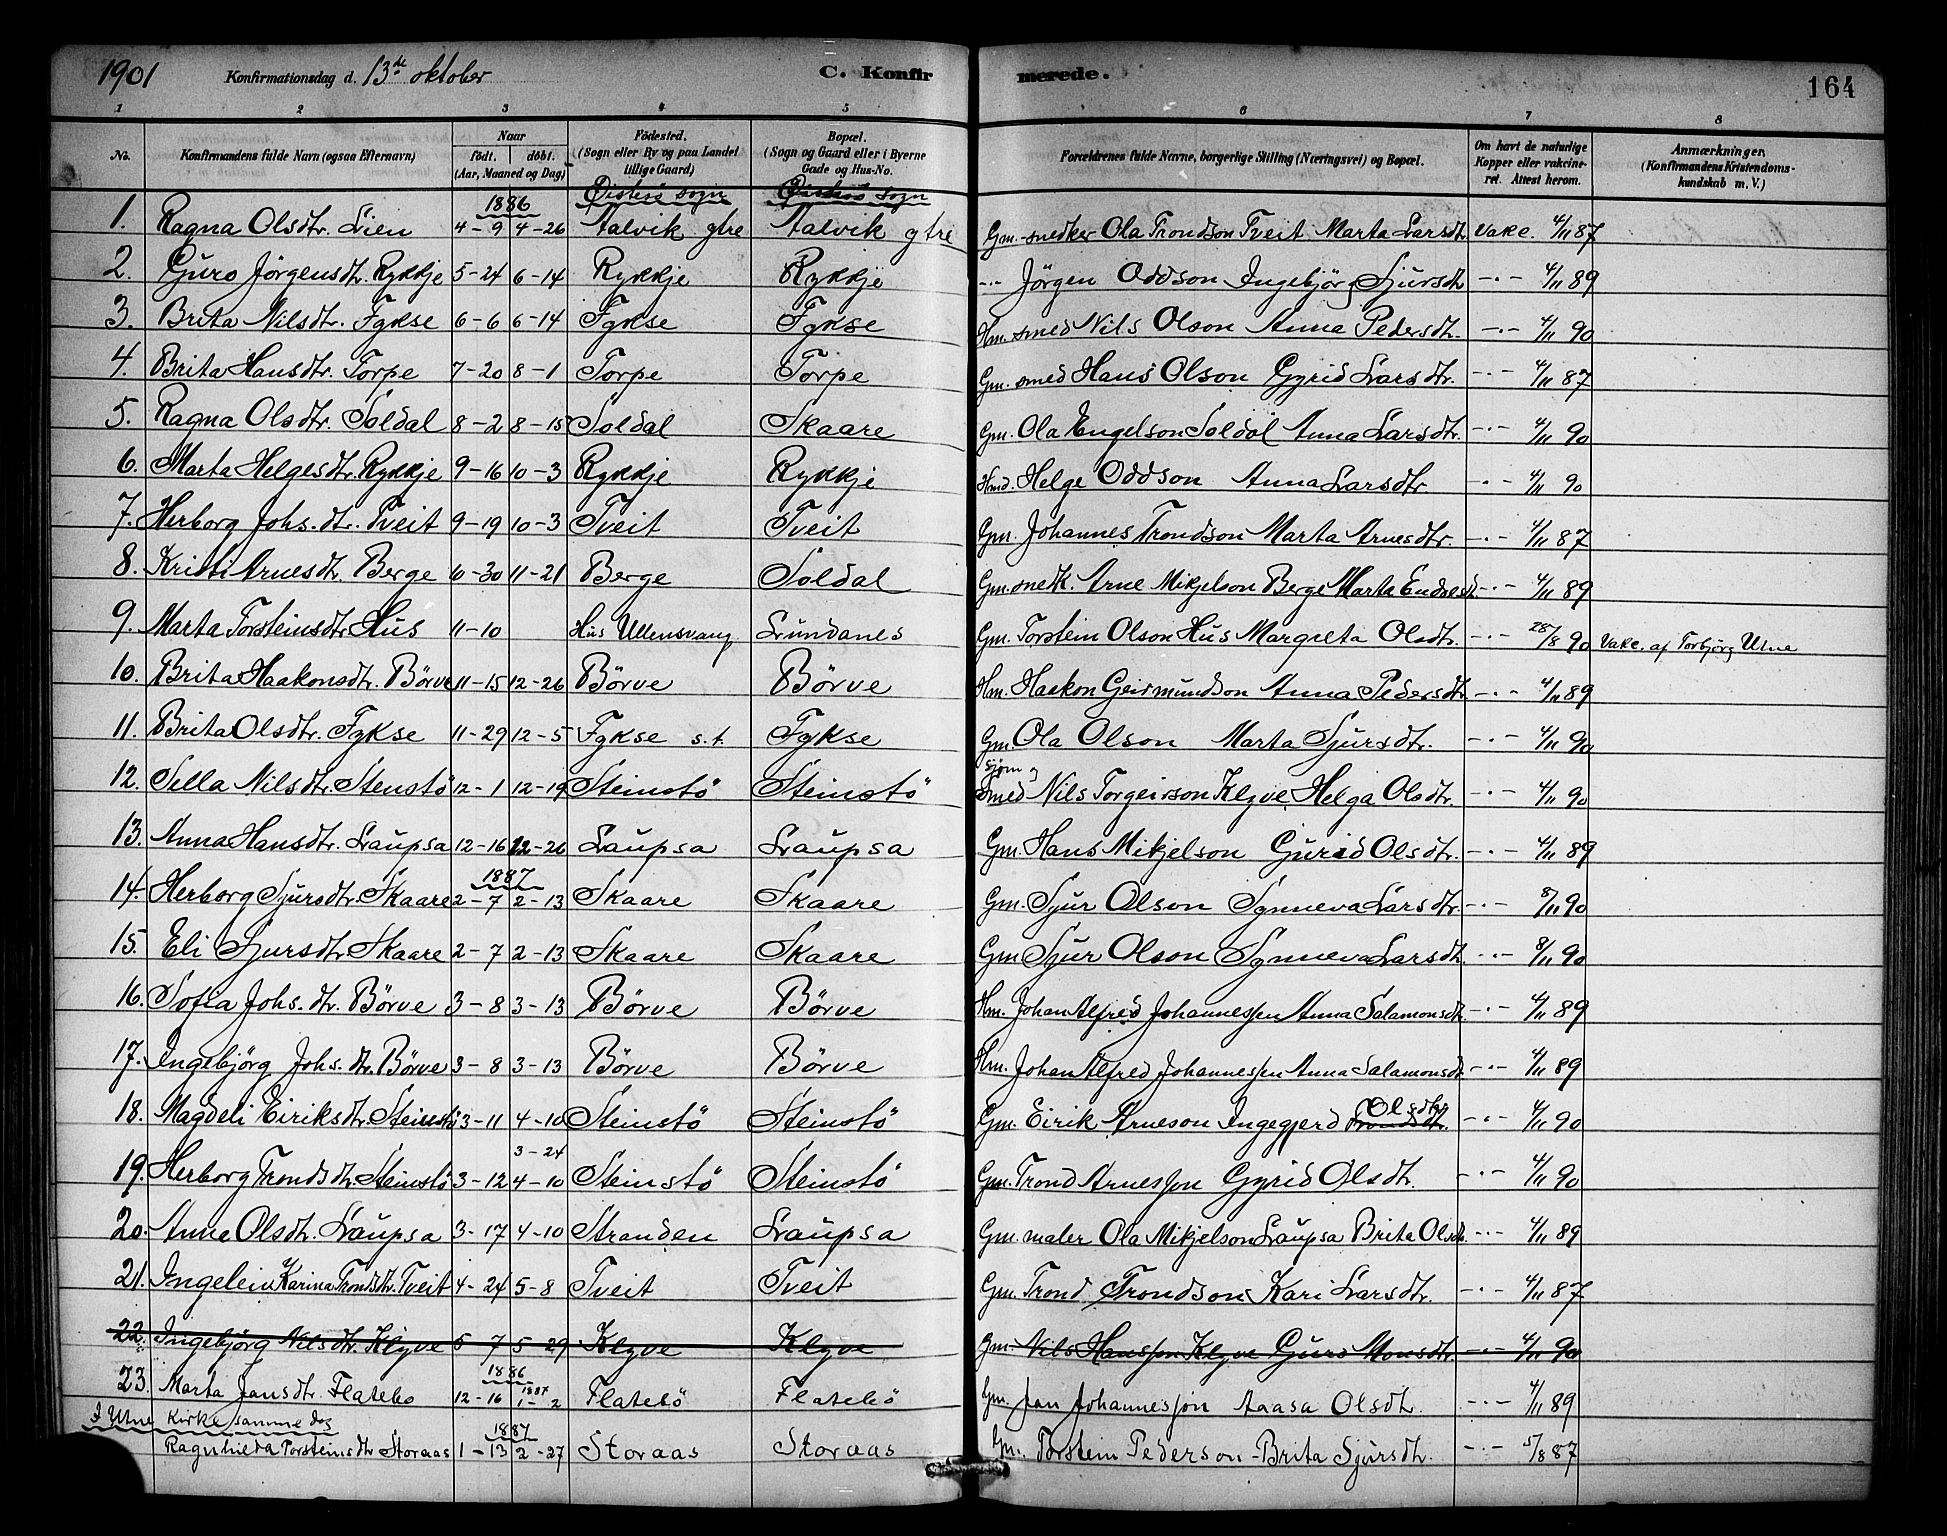 1901 Konfirmationsdag d. 13de oktober C. Konfirmerede. 164
1 2 3 4 5 6 7 8
No. Konfirmandens fulde Navn (ogsaa Efternavn) Naar födt. döbt. (Aar, Maaned og Dag) Födested. (Sogn eller By og paa Landet tillige Gaard) Bopæl. (Sogn og Gaard eller i Byerne Gade og Hus-No. Forældrenes fulde Navne, borgerlige Stilling (Næringsvei) og Bopæl. Om havt de naturlige Kopper eller vakcineret. Attest herom. Anmærkninger. (Konfirmandens Kristendomskundskab m. V.)
1886 Östesö sogn Östesö sogn
1. Ragna Olsdtr. Lien 4-9 4-26 Aalvik ytre Aalvik ytre Gm. snedker Ola Trondson Tveit Marta Larsdtr vakc. 4/11 87
2. Guro Jörgensdtr. Rykkje 5-24 6-14 Rykkje Rykkje -"- Jörgen Oddson Ingebjörg Sjursdtr -"- 4/11 89
3. Brita Nilsdtr. Fykse 6-6 6-14 Fykse Fykse Hm. smed Nils Olson Anna Pedersdtr. -"- 4/11 90
4. Brita Hansdtr. Torpe 7-20 8-1 Torpe Torpe Gm. smed Hans Olson Gyrid Larsdtr. -"- 4/11 87
5. Ragna Olsdtr. Soldal 8-2 8-15 Soldal Skaare Gm. Ola Engelson Soldal Anna Larsdtr. -"- 4/11 90
6. Marta Helgesdtr. Rykkje 9-16 10-3 Rykkje Rykkje Hmd. Helge Oddson Anna Larsdtr. -"- 4/11 90
7. Herborg Johs.dtr. Tveit 9-19 10-3 Tveit Tveit Gm. Johannes Trondson Marta Arnesdtr. -"- 4/11 87
8. Kristi Arnesdtr. Berge 10-30 11-21 Berge Soldal Gm. snedk. Arne Mikjelson Berge Marta Endresdt -"- 4/11 89
9. Marta Torsteinsdtr Hus 11-10 Hus Ullensvang Lundanes Gm. Torstein Olson Hus Margreta Olsdtr. -"- 28/8 90 Vakc. af Torbjörg Utne
10. Brita Haakonsdtr. Börve 11-15 12-26 Börve Börve Hm. Haakon Geirmundson Anna Pedersdtr. -"- 4/11 89
11. Brita Olsdtr. Fykse 11-29 12-5 Fykse s.t. Fykse Gm. Ola Olson Marta Sjursdtr. -"- 4/11 90
12. Sella Nilsdtr. Stenstö 12-1 12-19 Steinstö Steinstö sjöm og smed Nils Torgeirson Klyve Helga Olsdtr. -"- 4/11 90
13. Anna Hansdtr. Laupsa 12-16 12-26 Laupsa Laupsa Gm. Hans Mikjelson Gurid Olsdtr. -"- 4/11 89
1887
14. Herborg Sjursdtr. Skaare 2-7 2-13 Skaare Skaare Gm. Sjur Olson Synneva Larsdtr. -"- 8/11 90
15. Eli Sjursdtr. Skaare 2-7 2-13 Skaare Skaare Gm. Sjur Olson Synneva Larsdtr. -"- 8/11 90
16. Sofia Johs.dtr. Börve 3-8 3-13 Börve Börve Hm. Johan Alfred Johannessen Anna Salamonsdtr. -"- 4/11 89
17. Ingebjörg Johs.dtr. Börve 3-8 3-13 Börve Börve Hm. Johan Alfred Johannessen Anna Salamonsdtr. -"- 4/11 89
18. Magdeli Eiriksdtr. Steinstö 3-11 4-10 Steinstö Steinstö Gm. Eirik Arneson Ingegjerd Trondsdt. Olsdtr -"- 4/11 90
3-24
19. Herborg Trondsdtr. Steinstö 3-12 4-10 Steinstö Steinstö Gm. Trond Arnesson Gyrid Olsdtr. -"- 4/11 90
20. Anna Olsdtr. Laupsa 3-17 4-10 Stranden Laupsa Gm. maler Ola Mikjelson Laupsa Brita Olsdtr. -"- 4/11 89
21. Ingelein Karina Trondsdtr. Tveit 4-24 5-8 Tveit Tveit Gm. Trond Trondson Kari Larsdtr. -"- 4/11 87
22. Ingebjörg Nilsdtr. Klyve 5-7 5-29 Klyve Klyve Gm. Nils Hansson Klyve Guro Monsdtr. -"- 4/11 90
1886
23. Marta Jansdtr. Flatebö 12-16 1887 1-2 Flatebö Flatebö Gm. Jan Johannesson Aaasa Olsdtr. -"- 4/11 89
I Utne Kirke samme dag 1887
Ragnhilda Torsteinsdtr Storaas 1-13 2-27 Storaas Storaas Gm. Torstein Pederson - Brita Sjursdtr. -"- 5/8 87